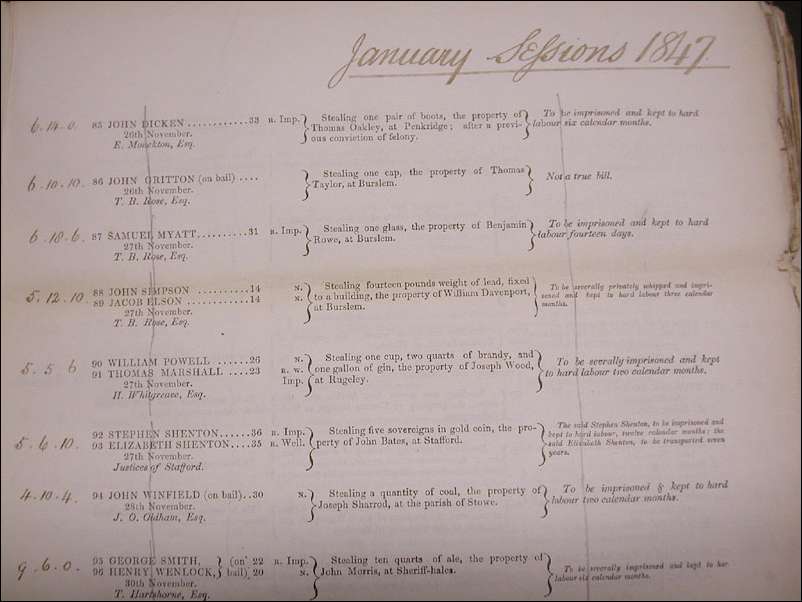 January Sessions 1847.
6.14.0. 85 JOHN DICKEN ............33 R. Imp. } Stealing one pair of boots, the property of } To be imprisoned and kept to hard
26th November. Thomas Oakley, at Penkridge; after a previ- labour six calendar months.
E. Monckton, Esq. ous conviction of felony.
6.10.10. 86 JOHN GRITTON (on bail) .... } Stealing one cap, the property of Thomas } Not a true bill.
26th November. Taylor, at Burslem.
T. B. Rose, Esq.
6.18.6. 87 SAMUEL MYATT..........31 R. Imp. } Stealing one glass, the property of Benjamin } To be imprisoned and kept to hard
27th November. Rowe, at Burslem. labour fourteen days.
T. B. Rose, Esq.
5.12.10 88 JOHN SIMPSON ..........14 N. } Stealing fourteen pounds weight of lead, fixed } To be severally privately whipped and impri-
89 JACOB ELSON ............14 N. to a building, the property of William Davenport, soned and kept to hard labour three calendar
27th November. at Burslem. months.
T. B. Rose, Esq.
5.5 6 90 WILLIAM POWELL ......26 N. } Stealing one cup, two quarts of brandy, and } To be severally imprisoned and kept
91 THOMAS MARSHALL ....23 R. W. one gallon of gin, the property of Joseph Wood, to hard labour two calendar months.
27th November. Imp. at Rugeley.
H. Whitgreave, Esq.
5.6.10. 92 STEPHEN SHENTON......36 R. Imp. } Stealing five sovereigns in gold coin, the pro- } The said Stephen Shenton, to be imprisoned and
93 ELIZABETH SHENTON....35 R. Well. perty of John Bates, at Stafford. kept to hard labour, twelve calendar months: the
27th November. said Elizabeth Shenton, to be transported seven
Justices of Stafford. years.
4.10.4. 94 JOHN WINFIELD (on bail)..30 N. } Stealing a quantity of coal, the property of } To be imprisoned & kept to hard
28th November. Joseph Sharrod, at the parish of Stowe. labour two calendar months.
J. O. Oldham, Esq.
9.6.0. 95 GEORGE SMITH, } (on 22 R. Imp. } Stealing ten quarts of ale, the property of } To be severally imprisoned and kept to har
96 HENRY WENLOCK, } bail) 20 N. John Morris, at Sheriff-hales. labour six calendar months.
30th November.
T. Hartshorne, Esq.